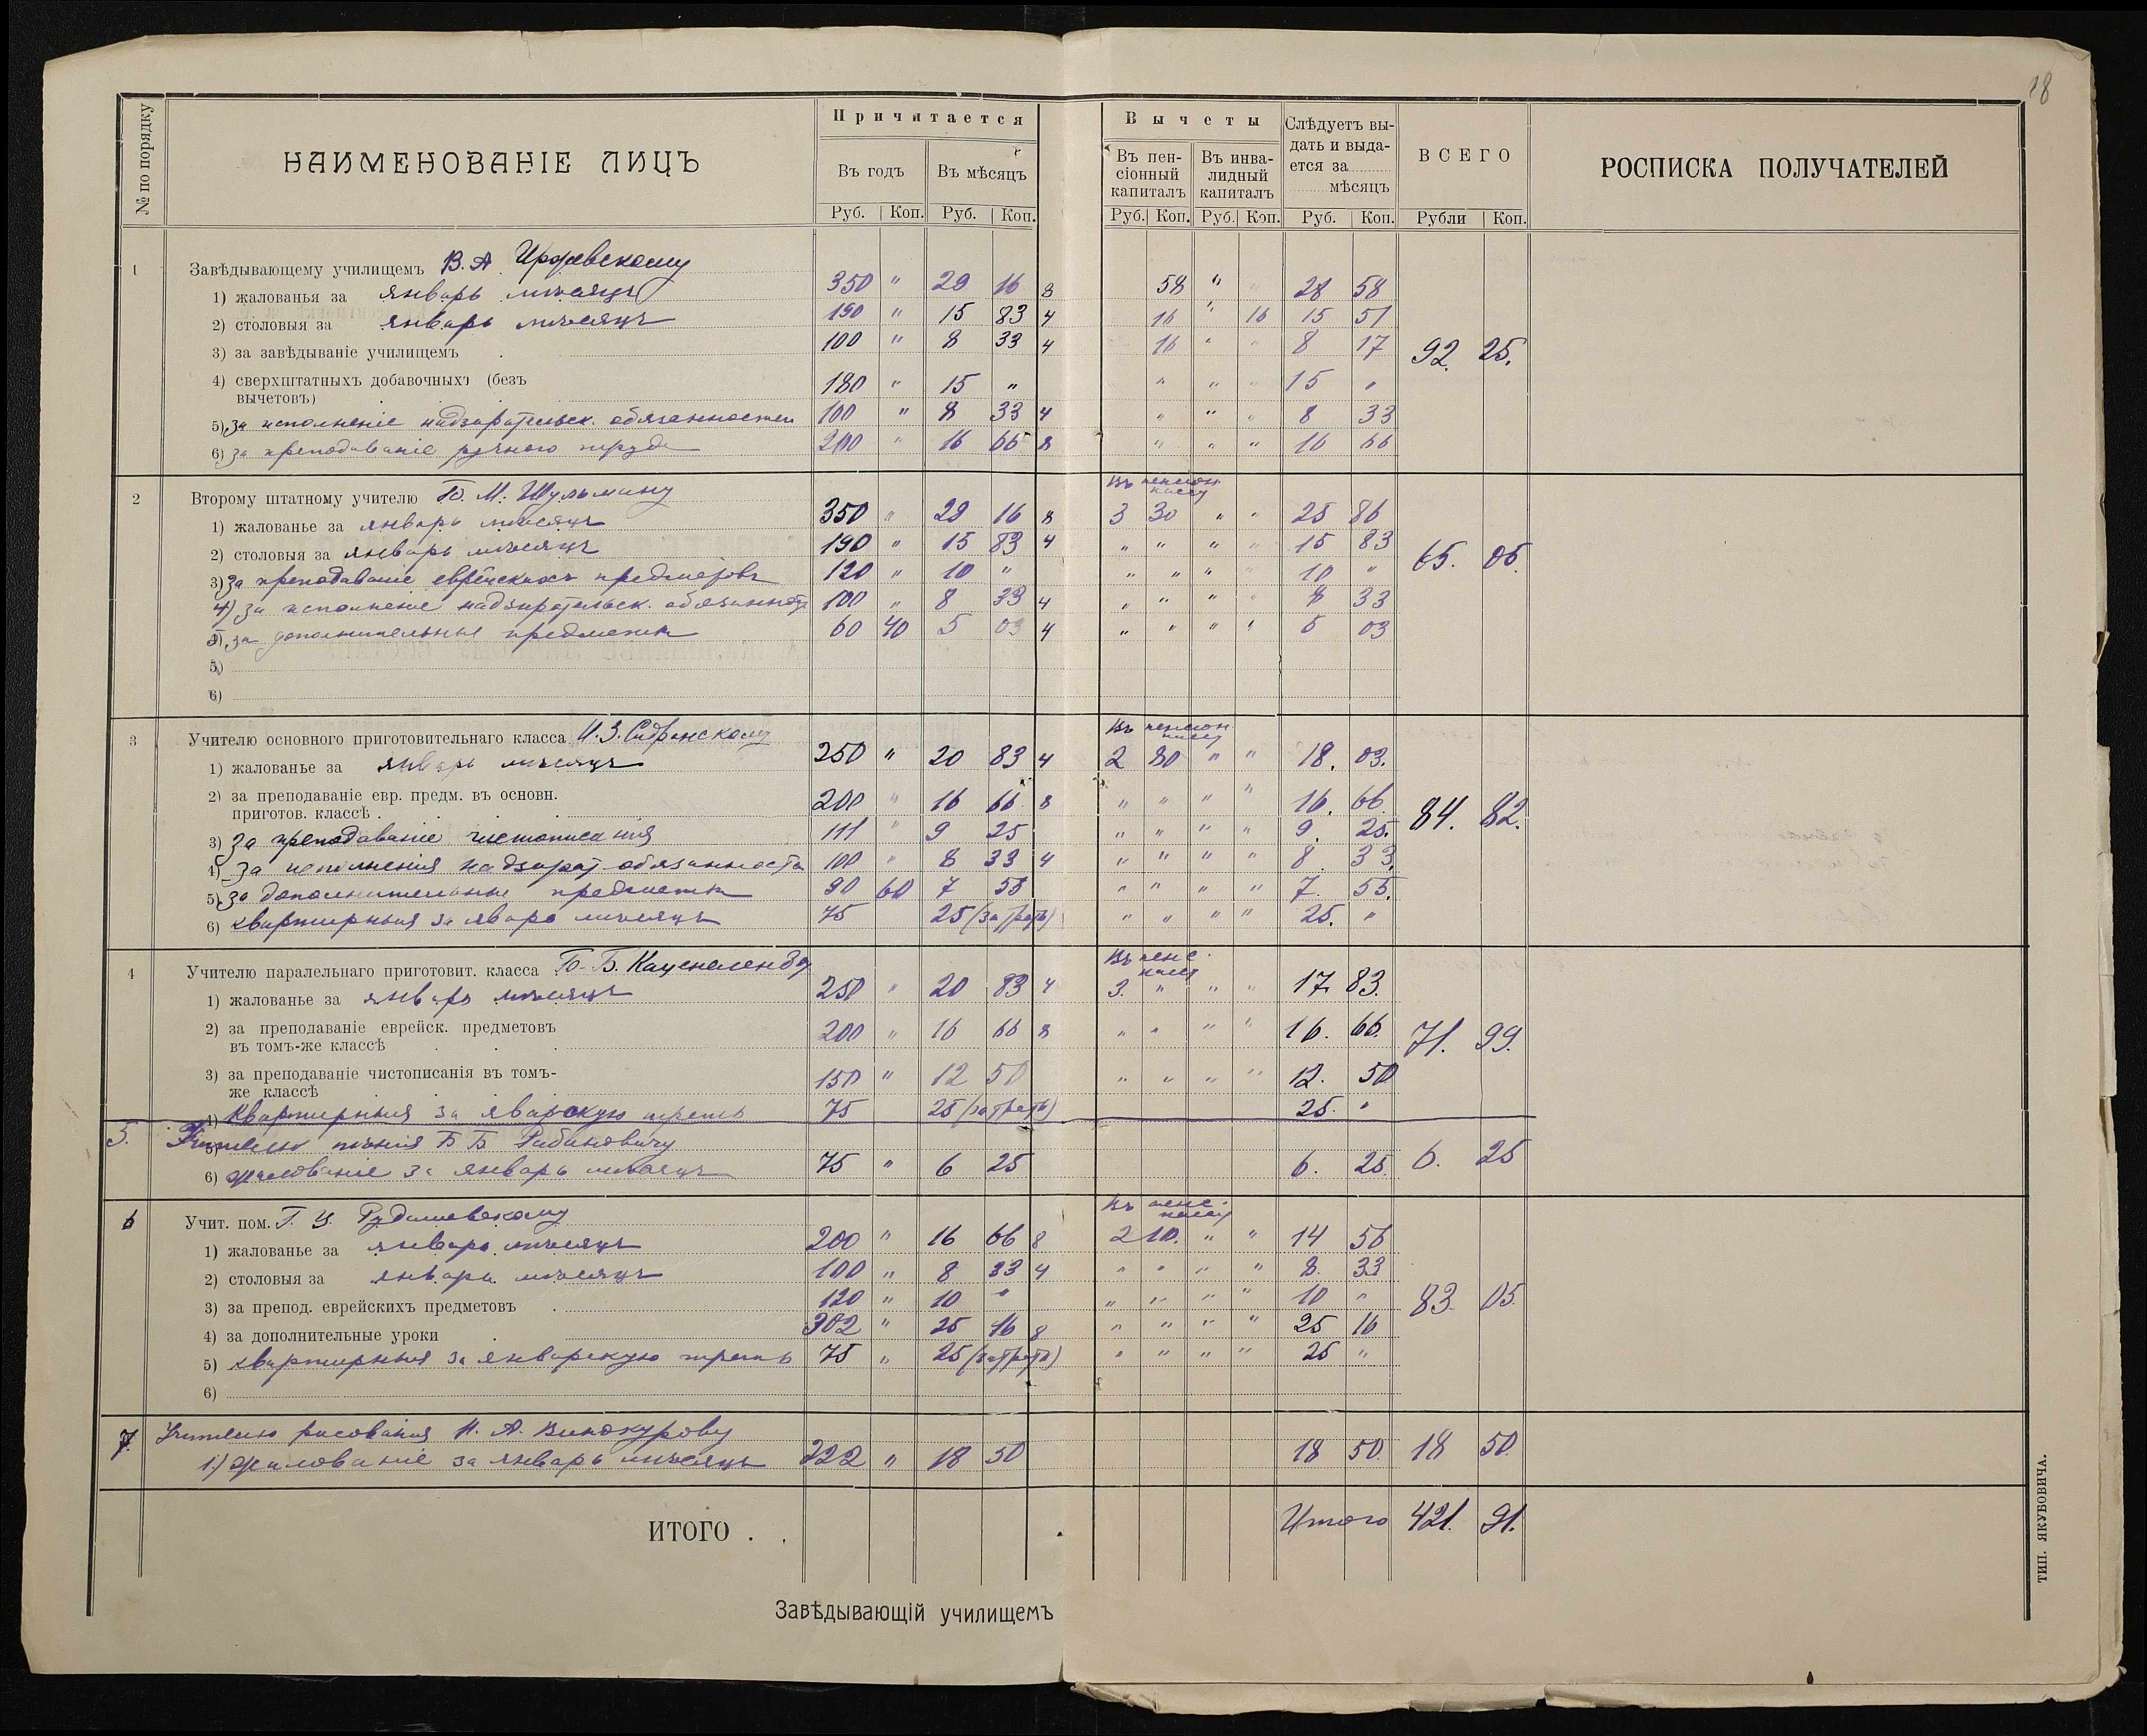 18
№ по порядку
НАИМЕНОВАНІЕ ЛИЦЪ
Причитается
Въ годъ
Въ мѣсяцъ
Руб. Коп. Руб. Коп.
Вычеты
Въ пен-
сіонный
капиталъ
Въ инва-
лидный
капиталъ
Слѣдуетъ вы-
дать и выда-
ется за
мѣсяцъ
ВСЕГО
РОСПИСКА ПОЛУЧАТЕЛЕЙ
Руб. Коп. Руб. Коп. Руб. Коп. Рубли Коп.
1 Завѣдывающему училищемъ В. А.
1) жалованья за январь мѣсяцъ 350 " 29 16 8 58 " " 28 58
2) столовыя за январь мѣсяцъ 190 " 15 83 4 16 " 16 15 51
3) за завѣдываніе училищемъ 100 " 8 33 4 16 " " 8 17 92. 25.
4) сверхштатныхъ добавочныхъ (безъ
вычетовъ) 180 " 15 " " " " 15 "
5) за исполненіе надзирательск. обязанностей 100 " 8 33 4 " " " 8 33
6) за преподаваніе ручного труда 200 " 16 66 8 " " " 16 66
2 Второму штатному учителю Б. М. Шульману Въ пенсіон. кассу
1) жалованье за январь мѣсяцъ 350 " 29 16 8 3 30 " " 25 86
2) столовыя за январь мѣсяцъ 190 " 15 83 4 " " " " 15 83
3) за преподаваніе еврейскихъ предметовъ 120 " 10 " " " " " 10 " 65. 05.
4) за исполненіе надзирательск. обязанност. 100 " 8 33 4 " " " " 8 33
за дополнительные предметы 60 40 5 03 4 " " " " 5 03
5)
6)
3 Учителю основного приготовительнаго класса И. З. Сидранскому Въ пенсіон кассу
1) жалованье за январь мѣсяцъ 250 " 20 83 4 2 80 " " 18. 03.
2) за преподаваніе евр. предм. въ основн.
приготов. классѣ 200 " 16 66 8 " " " " 16. 66
3) за преподаваніе чистописанія 111 " 9 25 " " " " 9. 25. 84. 82.
4) за исполненія надзират. обязанности 100 " 8 33 4 " " " " 8 33
5) за дополнительные предметы 90 60 7 55 " " " " 7. 55.
6) квартирныя за мѣсяцъ 75 25 (за треть) " " " " 25. "
4 Учителю паралельнаго приготовит. класса Б. Каценеленбо Въ пенс. кассу
1) жалованье за январь мѣсяцъ 250 " 20 83 4 3. " " " 17. 83.
2) за преподаваніе еврейск. предметовъ
въ томъ-же классѣ 200 " 16 66 8 " " " " 16. 66. 71. 99.
3) за преподаваніе чистописанія въ томъ-
же классѣ 150 " 12 50 " " " " 12. 50
4) Квартирныя за треть 75 25 (за треть) 25. "
5. Учителю пѣнія Б Б Рабиновичу
6) жалованіе за январь мѣсяцъ 75 " 6 25 6. 25. 6. 25
6 Учит. пом. Г. Рудашевскому Въ пенс. кассу
1) жалованье за январь мѣсяцъ 200 " 16 66 8 2 10. " " 14 56
2) столовыя за январь мѣсяцъ 100 " 8 33 4 " " " " 8. 33
3) за препод. еврейскихъ предметовъ 120 " 10 " " " " " 10 " 83. 05.
4) за дополнительные уроки 302 " 25 16 8 " " " " 25 16
5) квартирныя за январскую треть 75 " 25 (за треть) " " " " 25 "
6)
7. Учителю рисованія И. А. Винокурову
1) жалованіе за январь мѣсяцъ 222 " 18 50 18 50. 18 50.
ИТОГО . . Итого 421. 91.
Завѣдывающій училищемъ
ТИП. ЯКУБОВИЧА.